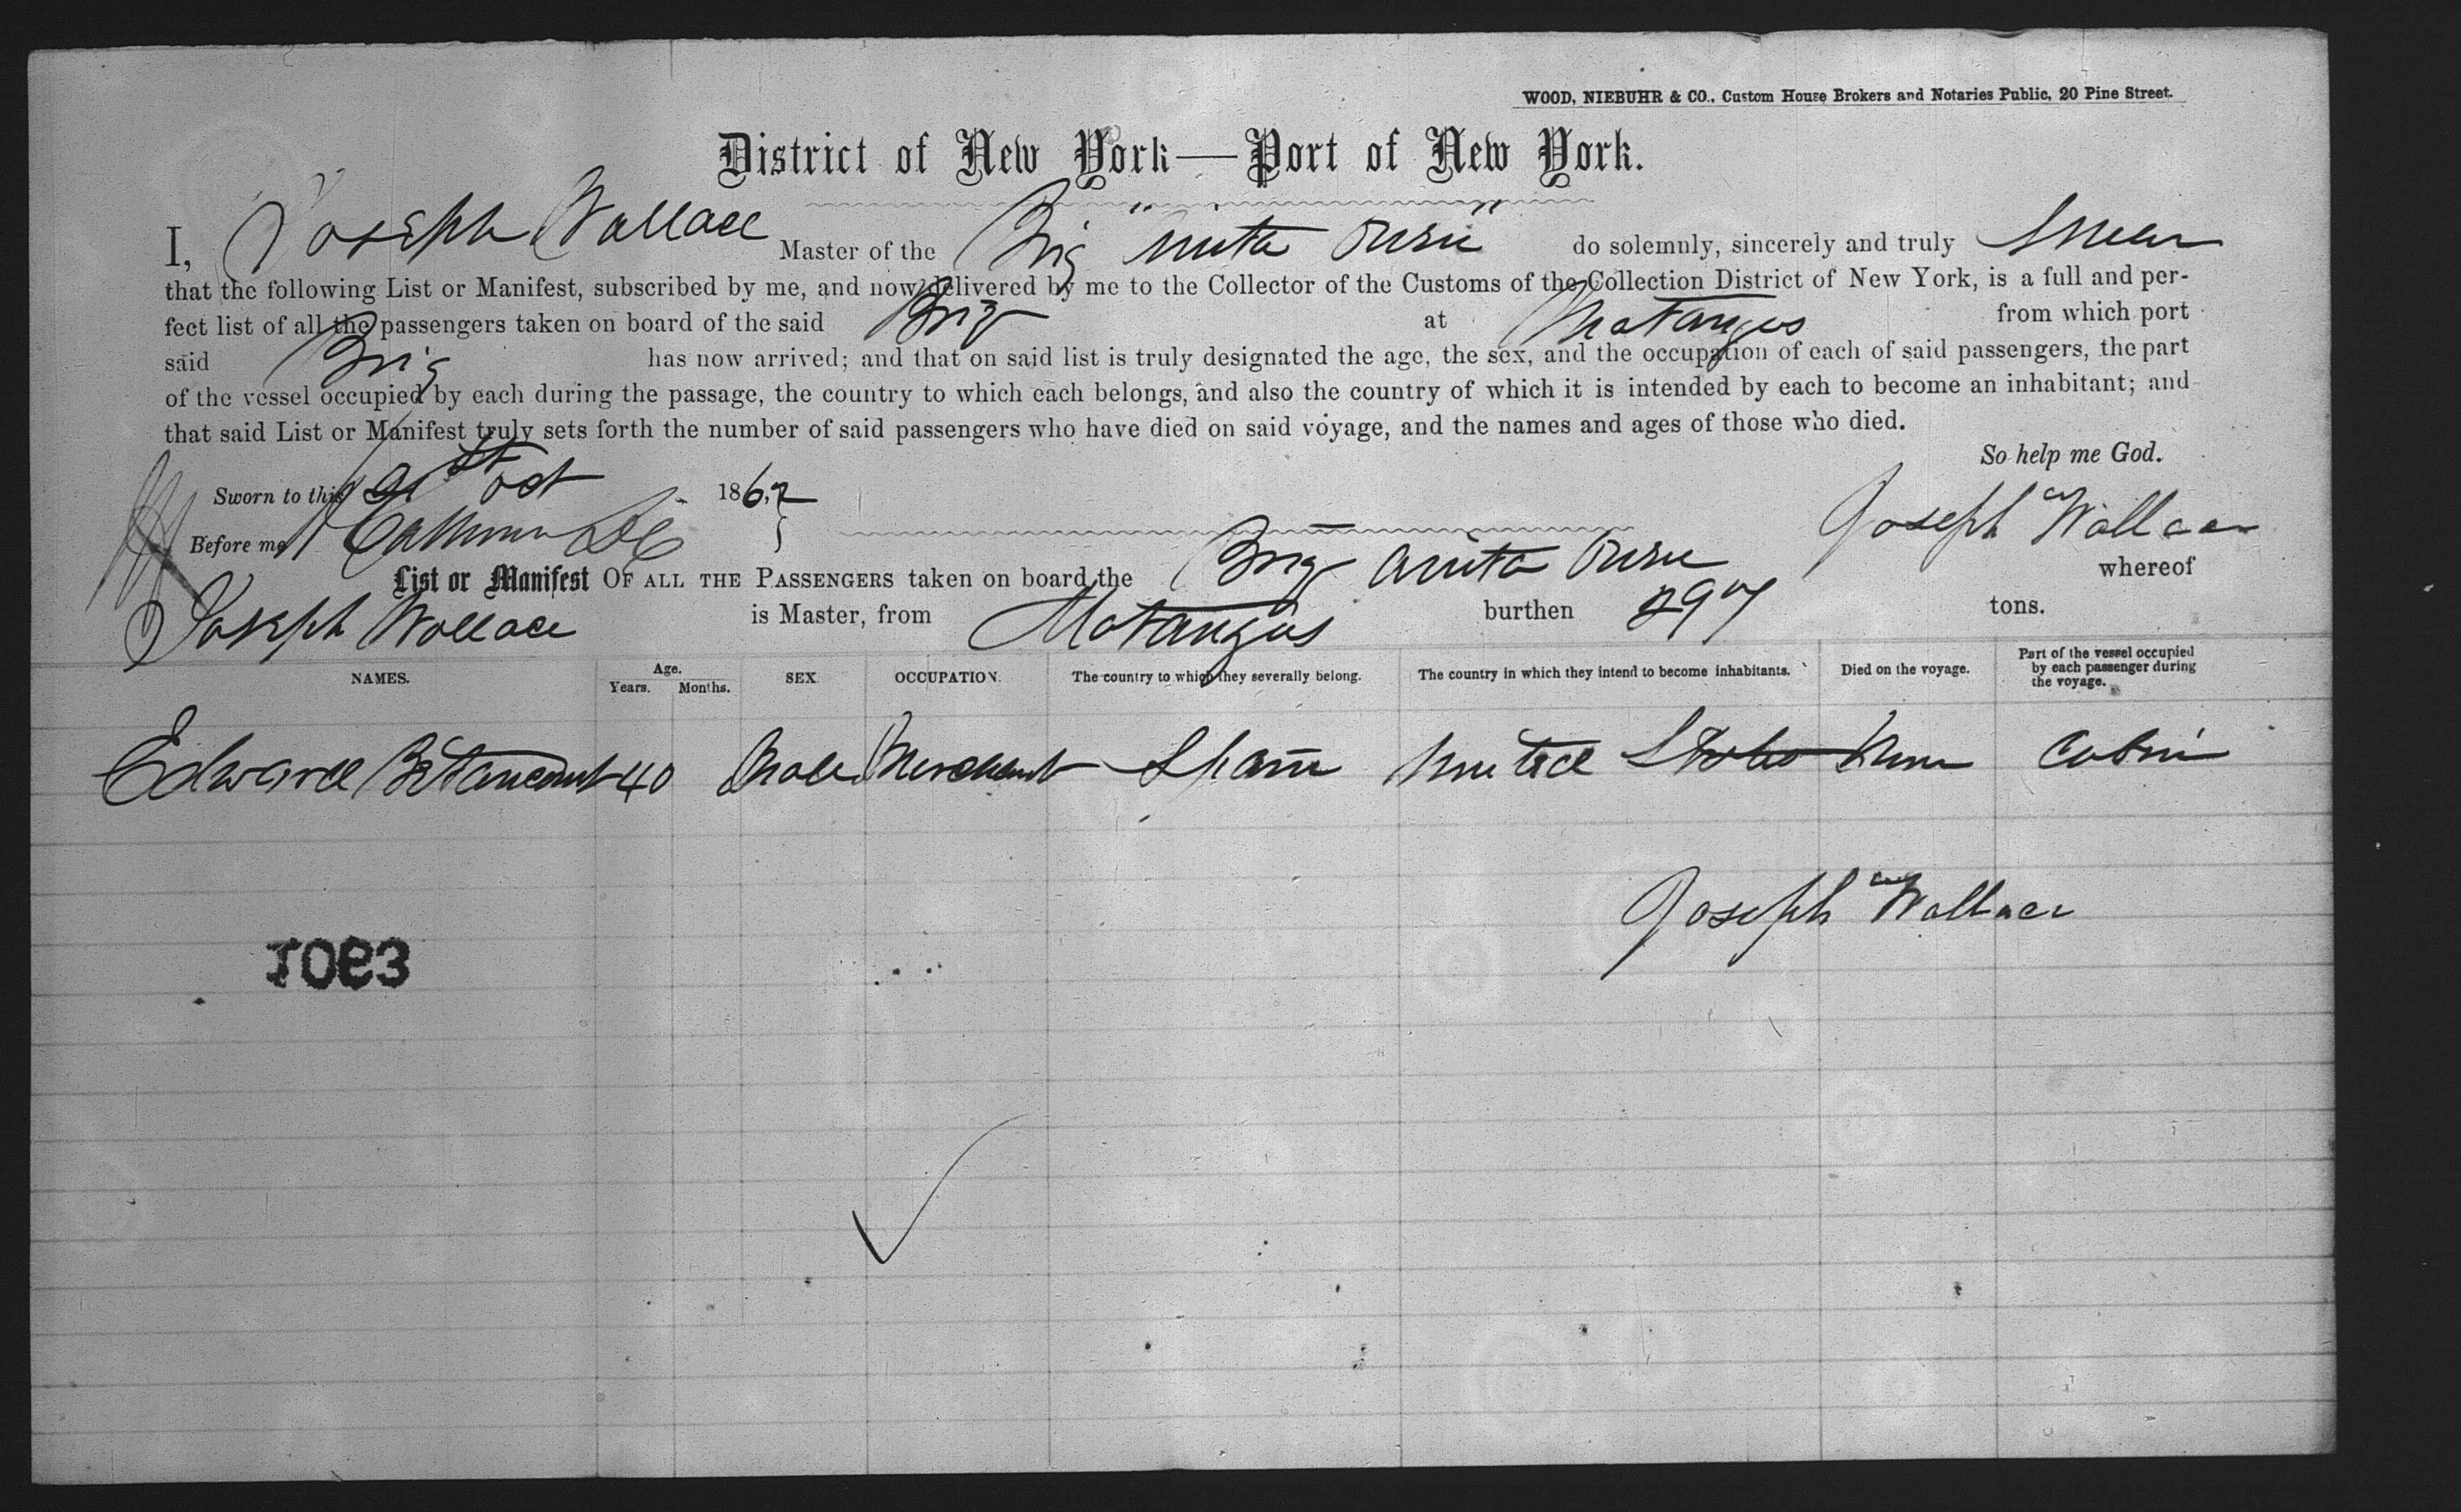 WOOD, NIEBUHR & CO., Custom House Brokers and Notaries Public, 20 Pine Street.
District of New York—Port of New York.
I, Joseph Wallace Master of the Brig "Anita do solemnly, sincerely and truly Swear
that the following List or Manifest, subscribed by me, and now delivered by me to the Collector of the Customs of the Collection District of New York, is a full and per-
fect list of all the passengers taken on board of the said Brig at Matanzas from which port
said Brig has now arrived; and that on said list is truly designated the age, the sex, and the occupation of each of said passengers, the part
of the vessel occupied by each during the passage, the country to which each belongs, and also the country of which it is intended by each to become an inhabitant; and
that said List or Manifest truly sets forth the number of said passengers who have died on said voyage, and the names and ages of those who died.
So help me God.
Sworn to this 21st Oct 1862
Before me Joseph Wallace
List or Manifest OF ALL THE PASSENGERS taken on board the Brig Anita whereof
Joseph Wallace is Master, from Matanzas burthen 297 tons.
NAMES. Age. Years. Months. SEX. OCCUPATION. The country to which they severally belong. The country in which they intend to become inhabitants. Died on the voyage. Part of the vessel occupied by each passenger during the voyage.
Edward Betancourt 40 Male Merchant Spain United States None Cabin
Joseph Wallace
1063